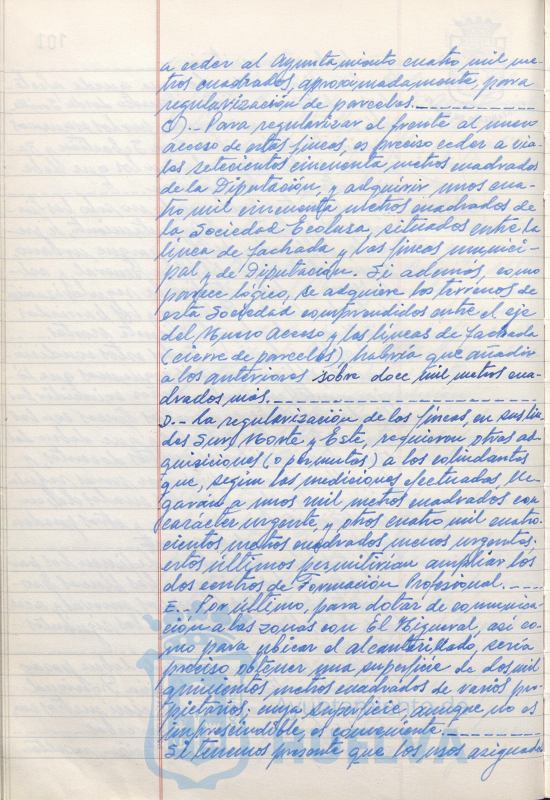 a ceder al Ayuntamiento cuatro mil me-
tros cuadrados, aproximadamente, para
regularización de parcelas.
C).- Para regularizar el frente al nuevo
acceso de estas fincas, es preciso ceder a via-
les setecientos cincuenta metros cuadrados
de la Diputación, y adquirir unos cua-
tro mil cincuenta metros cuadrados de
la Sociedad Ecolusa, situados entre la
línea de fachada y las fincas munici-
pal y de Diputación. Si además, como
parece lógico, se adquiere los terrenos de
esta Sociedad comprendidos entre el eje
del Nuevo Acceso y las líneas de fachada
(cierre de parcelas), habría que añadir
a los anteriores sobre doce mil metros cua-
drados más.
D.- La regularización de las fincas, en sus lin-
des Sur, Norte y Este, requieren otras ad-
quisiciones (o permutas) a los colindantes
que, según las mediciones efectuadas, lle-
garán a unos mil metros cuadrados con
carácter urgente, y otros cuatro mil cuatro-
cientos metros cuadrados menos urgentes.
estos últimos permitirían ampliar los
dos centros de Formación Profesional.
E.- Por último, para dotar de comunica-
ción a las zonas con El Higueral, así co-
mo para ubicar el alcantarillado, sería
preciso obtener una superficie de dos mil
quinientos metros cuadrados de varios pro-
pietarios, cuya superficie aunque no es
imprescindible, es conveniente.
Si tenemos presente que los usos asignados